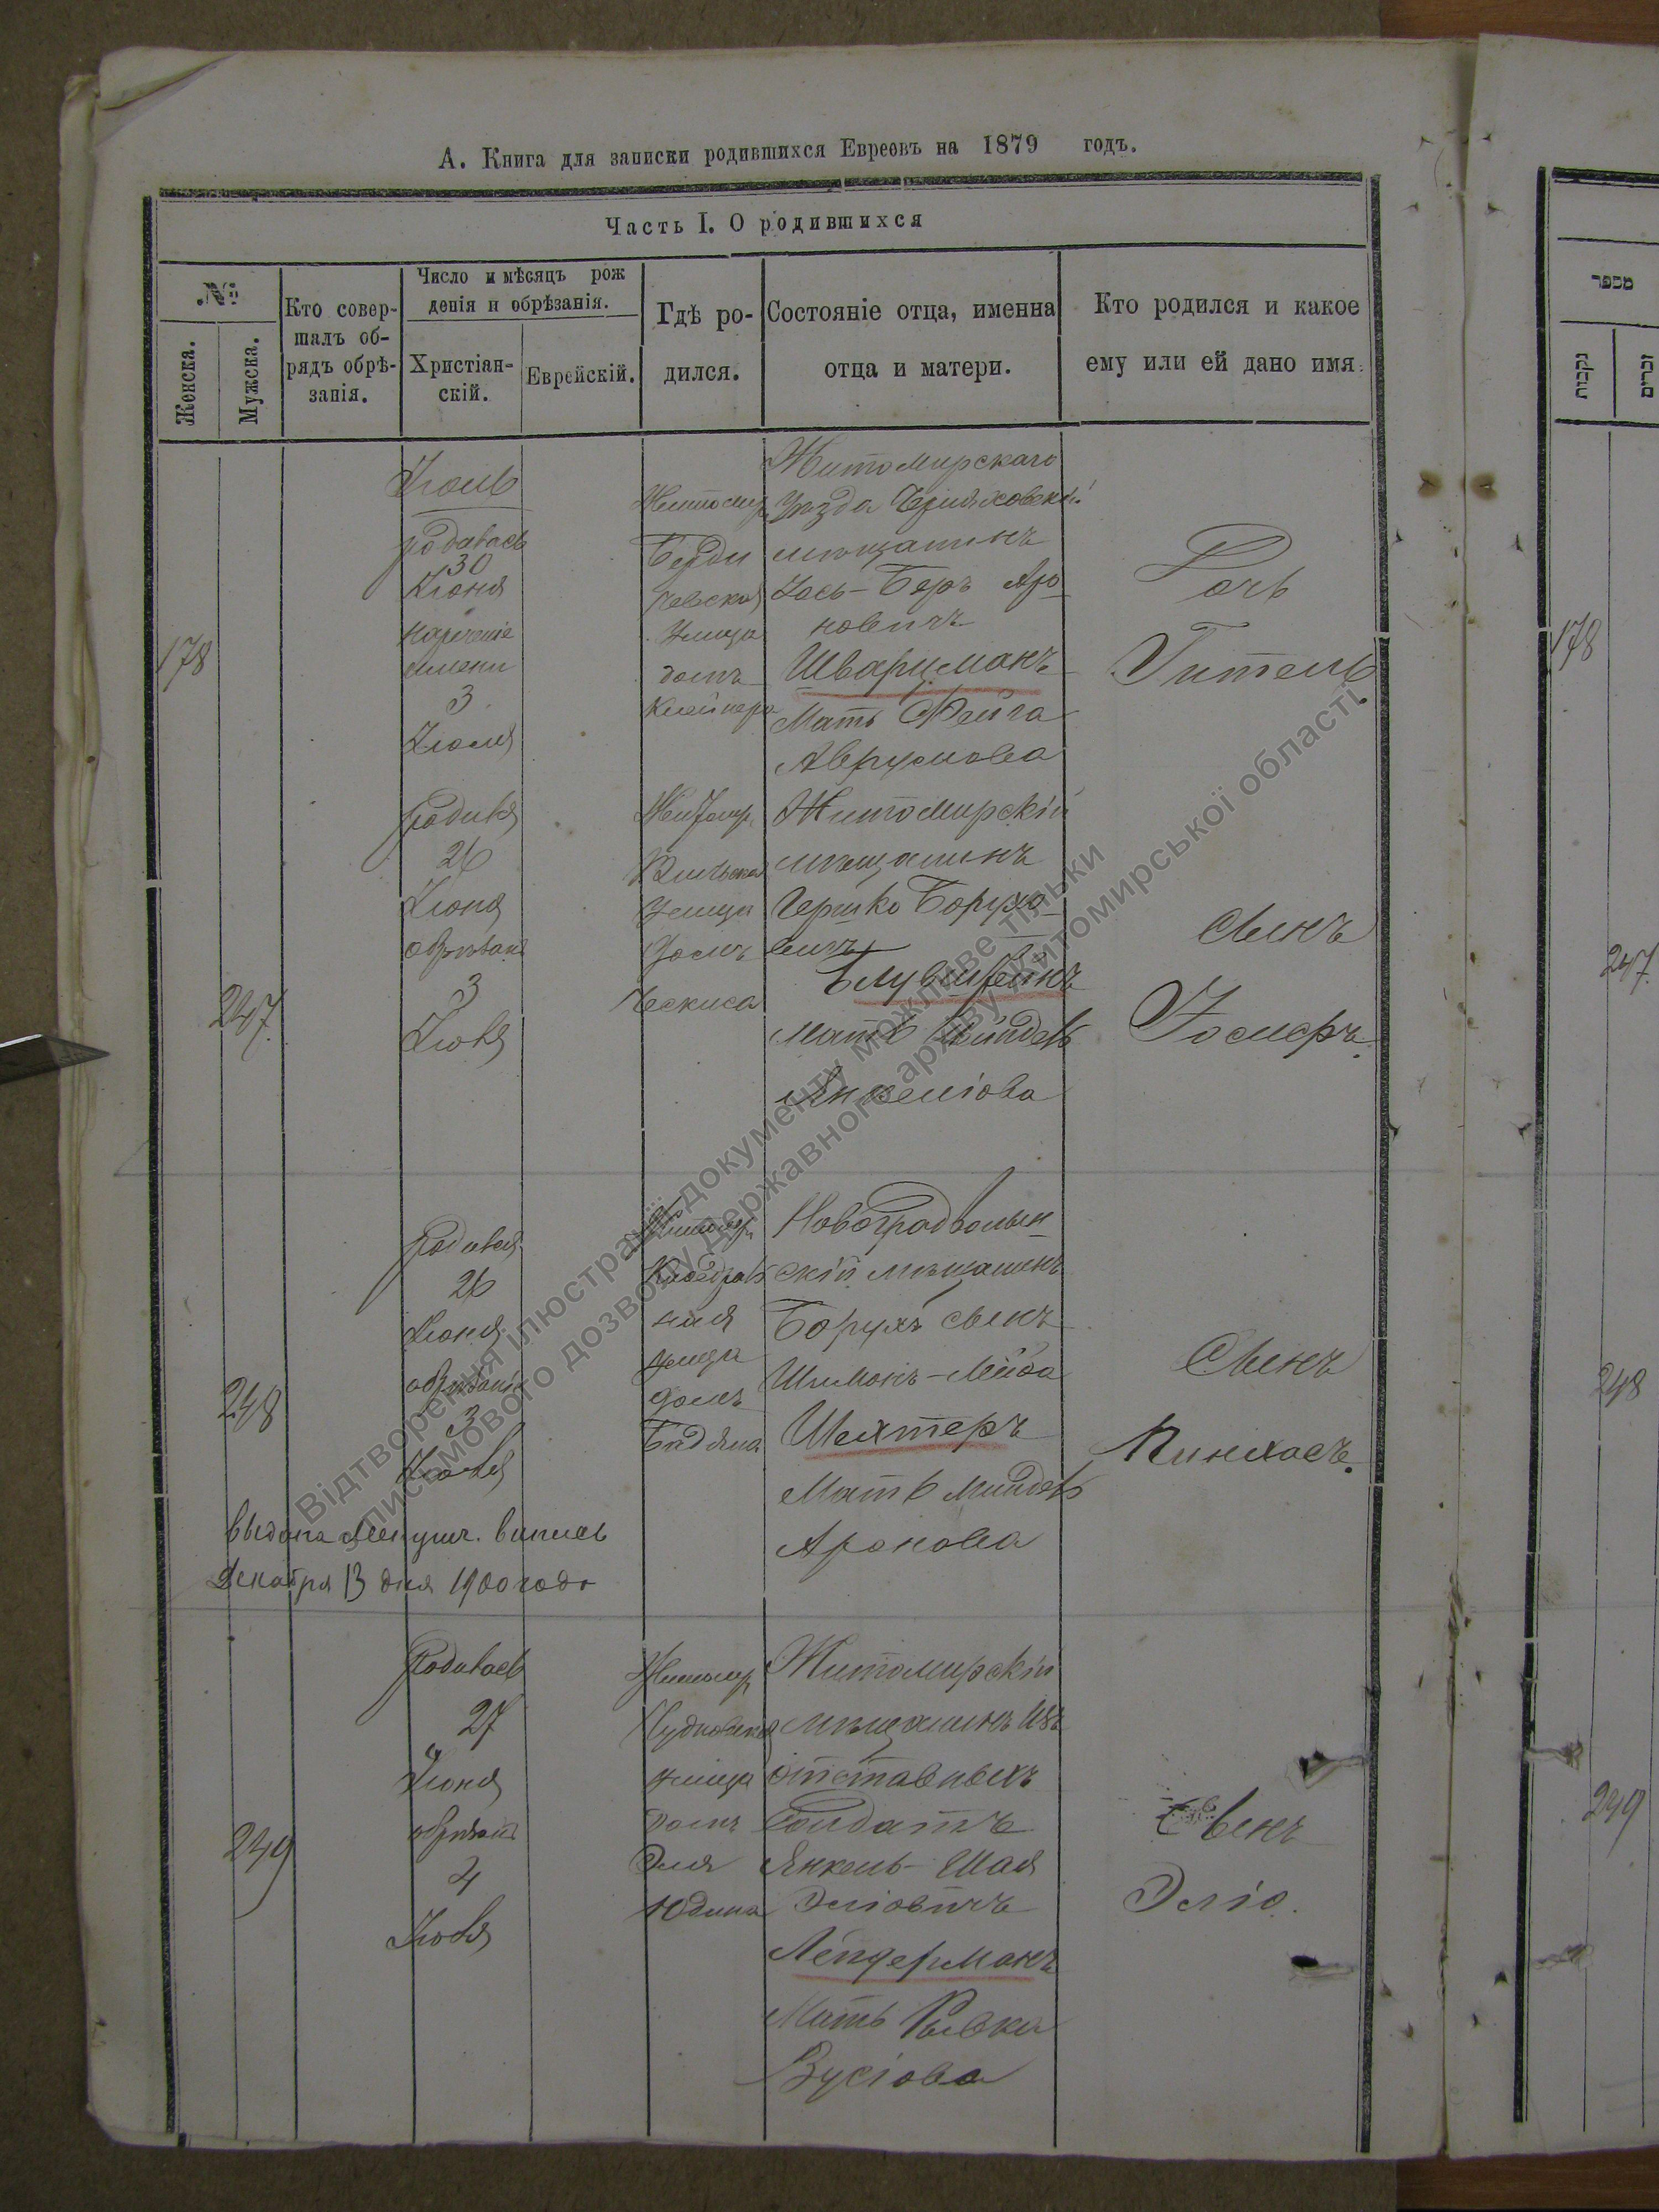 А. Книга для записки родившихся Евреевъ на 1879 годъ.
Часть I. О родившихся
№
Женска.
Мужска.
Кто совер-
шалъ об-
рядъ обрѣ-
занія.
Число и мѣсяцъ рож
денія и обрѣзанія.
Христіан-
скій.
Еврейскій.
Гдѣ ро-
дился.
Состояніе отца, именна
отца и матери.
Кто родился и какое
ему или ей дано имя.
178
Іюль
родилась
30
Іюня
нареченіе
имени
3
Іюля
Житомир
Берди
чевская
улица
домъ
Клейнера
Житомирскаго
Уѣзда Черняховскій
мѣщанинъ
Іось-Беръ Аро
новичъ
Шварцманъ
Мать Фейга
Аврумова
Дочь
Гитель
247
родился
26
Іюня
обрѣзанъ
3
Іюля
Житомир
Вильская
улица
домъ
Ческиса
Житомирскій
мѣщанинъ
Гершко Борухо-
вичъ
Блувштейнъ
Мать
Янкеліова
Сынъ
Іосифъ
248
родился
26
Іюня
обрѣзаніе
3
Іюля
Житомир
Кафедраль
ная
улица
домъ
Новоградволын-
скій мѣщанинъ
Борухъ сынъ
Шимонъ-Лейба
Шехтеръ
Мать Миндель
Аронова
Сынъ
Пинхасъ.
выдана выпись
Декабря 13 дня 1900 года
249
Родилась
27
Іюня
обрѣзанъ
4
Іюля
Житомир
Чудновская
улица
домъ
Эля
Юдина
Житомирскій
мѣщанинъ изъ
отставныхъ
Солдатъ
Янкель-Шая
Эліовичъ
Лендерманъ
Мать Рывка
Зусіова
Сынъ
Эліо.
מספר
נקבות
זכרים
178
247.
248
249
Відтворення ілюстрації документу можливе тільки
з письмового дозволу Державного архіву Житомирської області.